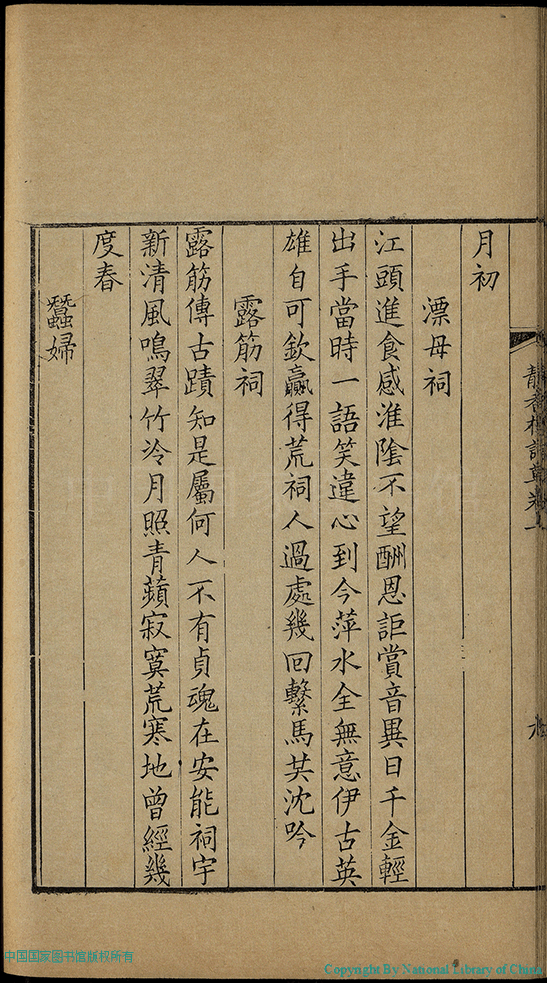 詩草卷一
月初
漂母祠
江頭進食感淮陰不望酬恩詎賞音異日千金輕
出手當時一語笑違心到今萍水全無意伊古英
雄自可欽贏得荒祠人過處幾回繫馬共沈吟
露筋祠
露筋傳古蹟知是屬何人不有貞魂在安能祠宇
新清風鳴翠竹冷月照青蘋寂寞荒寒地曾經幾
度春
蠶婦
中国国家图书馆版权所有
Copyright By National Library of China